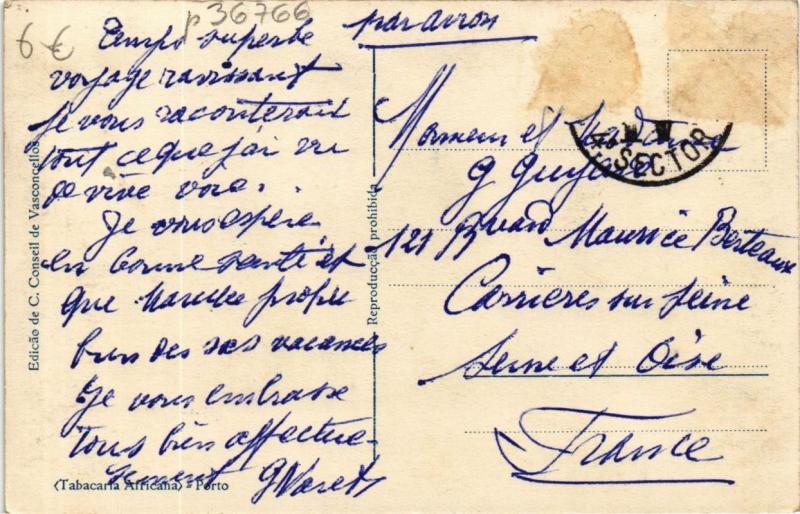 6 €
p 36766
Temps superbe
voyage ravissant
Je vous raconterai
tout ce que j'ai vu
de vive voix.
Je vous espère
en bonne santé et
que profite
bien de ses vacances
Je vous embrasse
Tous bien affectueu-
sement
par avion
Monsieur et Madame
G
121 Bvard Maurice Berteaux
Carrières sur Seine
Seine et Oise
France
4. SECTOR
Edição de C. Conseil de Vasconcellos
Reproducção prohibida
(Tabacaria Africana) - Porto